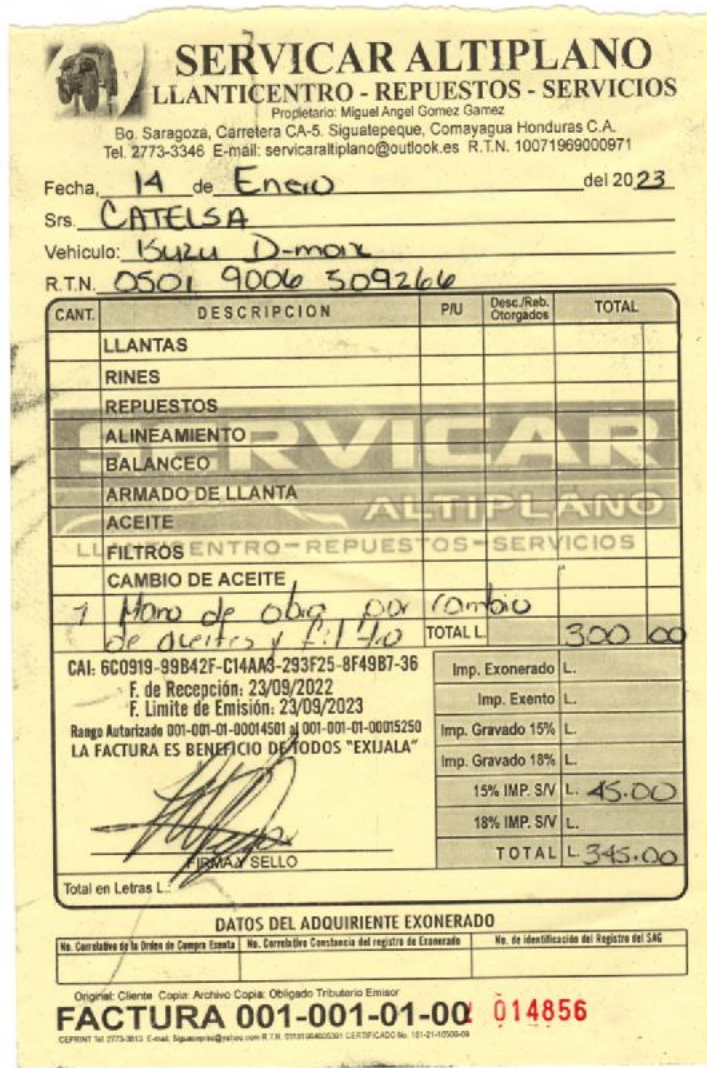 SERVICAR ALTIPLANO
LLANTICENTRO - REPUESTOS - SERVICIOS
Propietario: Miguel Angel Gomez Gamez
Bo. Saragoza, Carretera CA-5. Siguatepeque, Comayagua Honduras C.A.
Tel. 2773-3346 E-mail: servicaraltiplano@outlook.es R.T.N. 10071969000971
Fecha, 14 de Enero del 2023
Srs. CATELSA
Vehiculo: Isuzu D-max
R.T.N. 0501 9006 509266
CANT. DESCRIPCION P/U Desc./Reb. Otorgados TOTAL
LLANTAS
RINES
REPUESTOS
ALINEAMIENTO
BALANCEO
ARMADO DE LLANTA
ACEITE
FILTROS
CAMBIO DE ACEITE
SERVICAR
ALTIPLANO
LLANTICENTRO-REPUESTOS-SERVICIOS
1 Mano de obra por cambio
de aceites y filtro TOTAL L. 300 00
CAI: 6C0919-99B42F-C14AA3-293F25-8F49B7-36
F. de Recepción: 23/09/2022
F. Limite de Emisión: 23/09/2023
Rango Autorizado 001-001-01-00014501 al 001-001-01-00015250
LA FACTURA ES BENEFICIO DE TODOS "EXIJALA"
Imp. Exonerado L.
Imp. Exento L.
Imp. Gravado 15% L.
Imp. Gravado 18% L.
15% IMP. S/V L. 45.00
18% IMP. S/V L.
TOTAL L. 345.00
FIRMA Y SELLO
Total en Letras L.:
DATOS DEL ADQUIRIENTE EXONERADO
No. Correlativo de la Orden de Compra Exenta No. Correlativo Constancia del registro de Exonerado No. de identificación del Registro del SAG
Original: Cliente Copia: Archivo Copia: Obligado Tributario Emisor
FACTURA 001-001-01-00 014856
CEPRINT Tel 2773-3613 E-mail: